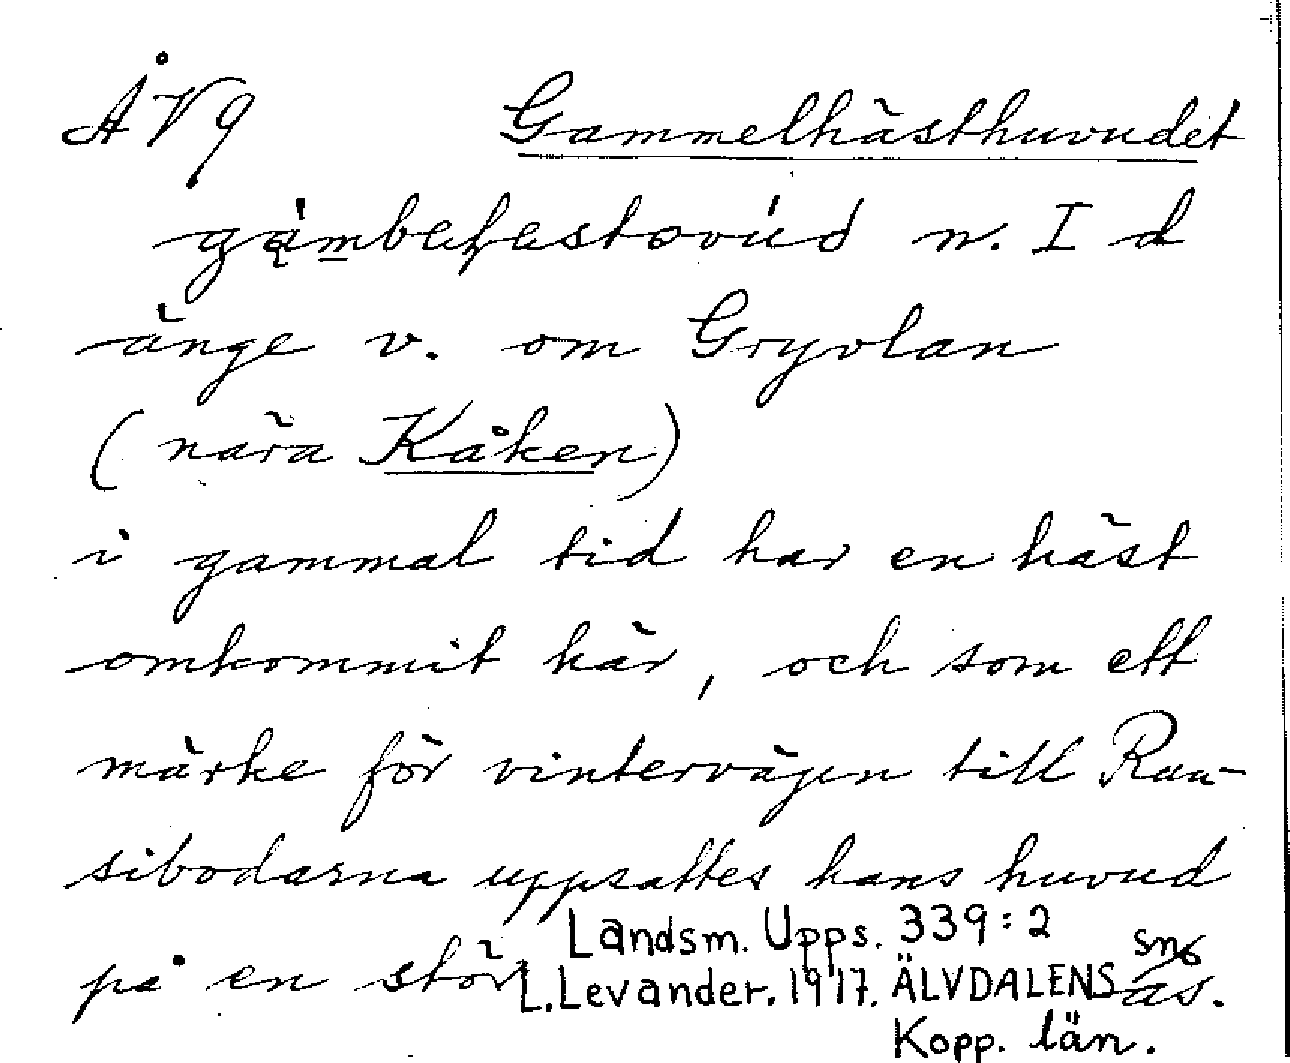 ÅV9 Gammelhästhuvudet
n. I d
änge v. om Gryvlan
(nära Kåken)
i gammal tid har en häst
omkommit här, och som ett
märke för vintervägen till Raa-
sibodarna uppsattes hans huvud
på en stör
Landsm. Upps. 339:2
L. Levander. 1917. ÄLVDALENS sn
ås.
Kopp. län.